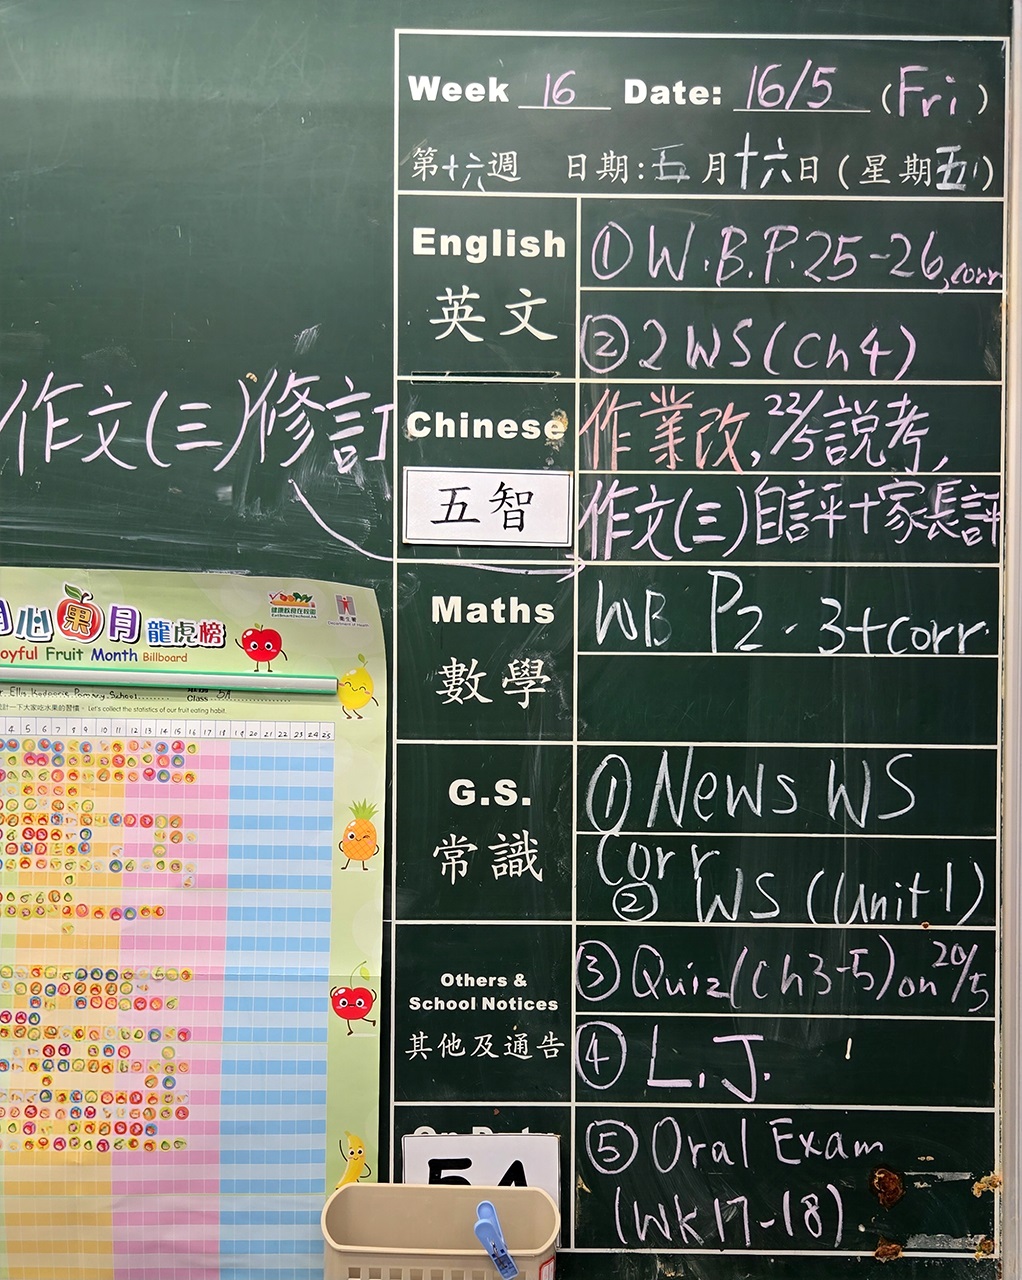 Week 16 Date: 16/5 (Fri)
第十六週 日期:五月十六日(星期五)
English
英文
① W.B.P.25-26,corr
② 2 WS(Ch4)
Chinese
五智
作業改,22/5說考,
作文(三)自評+家長評
作文(三)修訂
Maths
數學
WB P2-3+corr.
G.S.
常識
① News WS
corr
② WS (Unit 1)
Others &
School Notices
其他及通告
③ Quiz(Ch3-5) on 20/5
④ L.J.
⑤ Oral Exam
(WK17-18)
5A
心果月龍虎榜
Joyful Fruit Month Billboard
EatSmart@school.hk
衞生署
Department of Health
Ellis Kadoorie Primary School
Class 5A
Let's collect the statistics of our fruit eating habit.
4 5 6 7 8 9 10 11 12 13 14 15 16 17 18 19 20 21 22 23 24 25